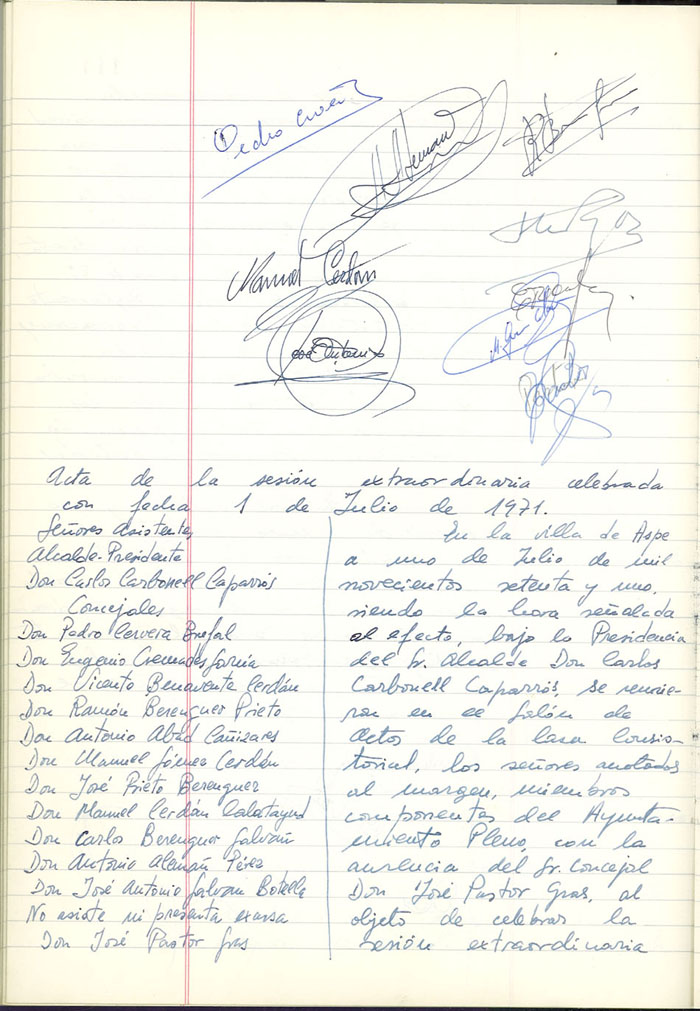 Pedro
Manuel Cerdán
José Antonio
Acta de la sesión extraordinaria celebrada
con fecha 1 de Julio de 1971.
Señores asistentes
Alcalde-Presidente
Don Carlos Carbonell Caparrós
Concejales
Don Pedro Cervera Brefal
Don Eugenio Cremades García
Don Vicente Benavente Cerdán
Don Ramón Berenguer Prieto
Don Antonio Abad Cañizares
Don Manuel Gómez Cerdán
Don José Prieto Berenguer
Don Manuel Cerdán Calatayud
Don Carlos Berenguer Galván
Don Antonio Alemañ Pérez
Don José Antonio Galvan Botella
No asiste ni presenta excusa
Don José Pastor Gras
En la villa de Aspe
a uno de Julio de mil
novecientos setenta y uno,
siendo la hora señalada
al efecto, bajo la Presidencia
del Sr. Alcalde Don Carlos
Carbonell Caparrós, se reunie-
ron en el Salón de
Actos de la Casa Consis-
torial, los señores anotados
al margen, miembros
componentes del Ayunta-
miento Pleno, con la
ausencia del Sr. Concejal
Don José Pastor Gras, al
objeto de celebrar la
sesión extraordinaria